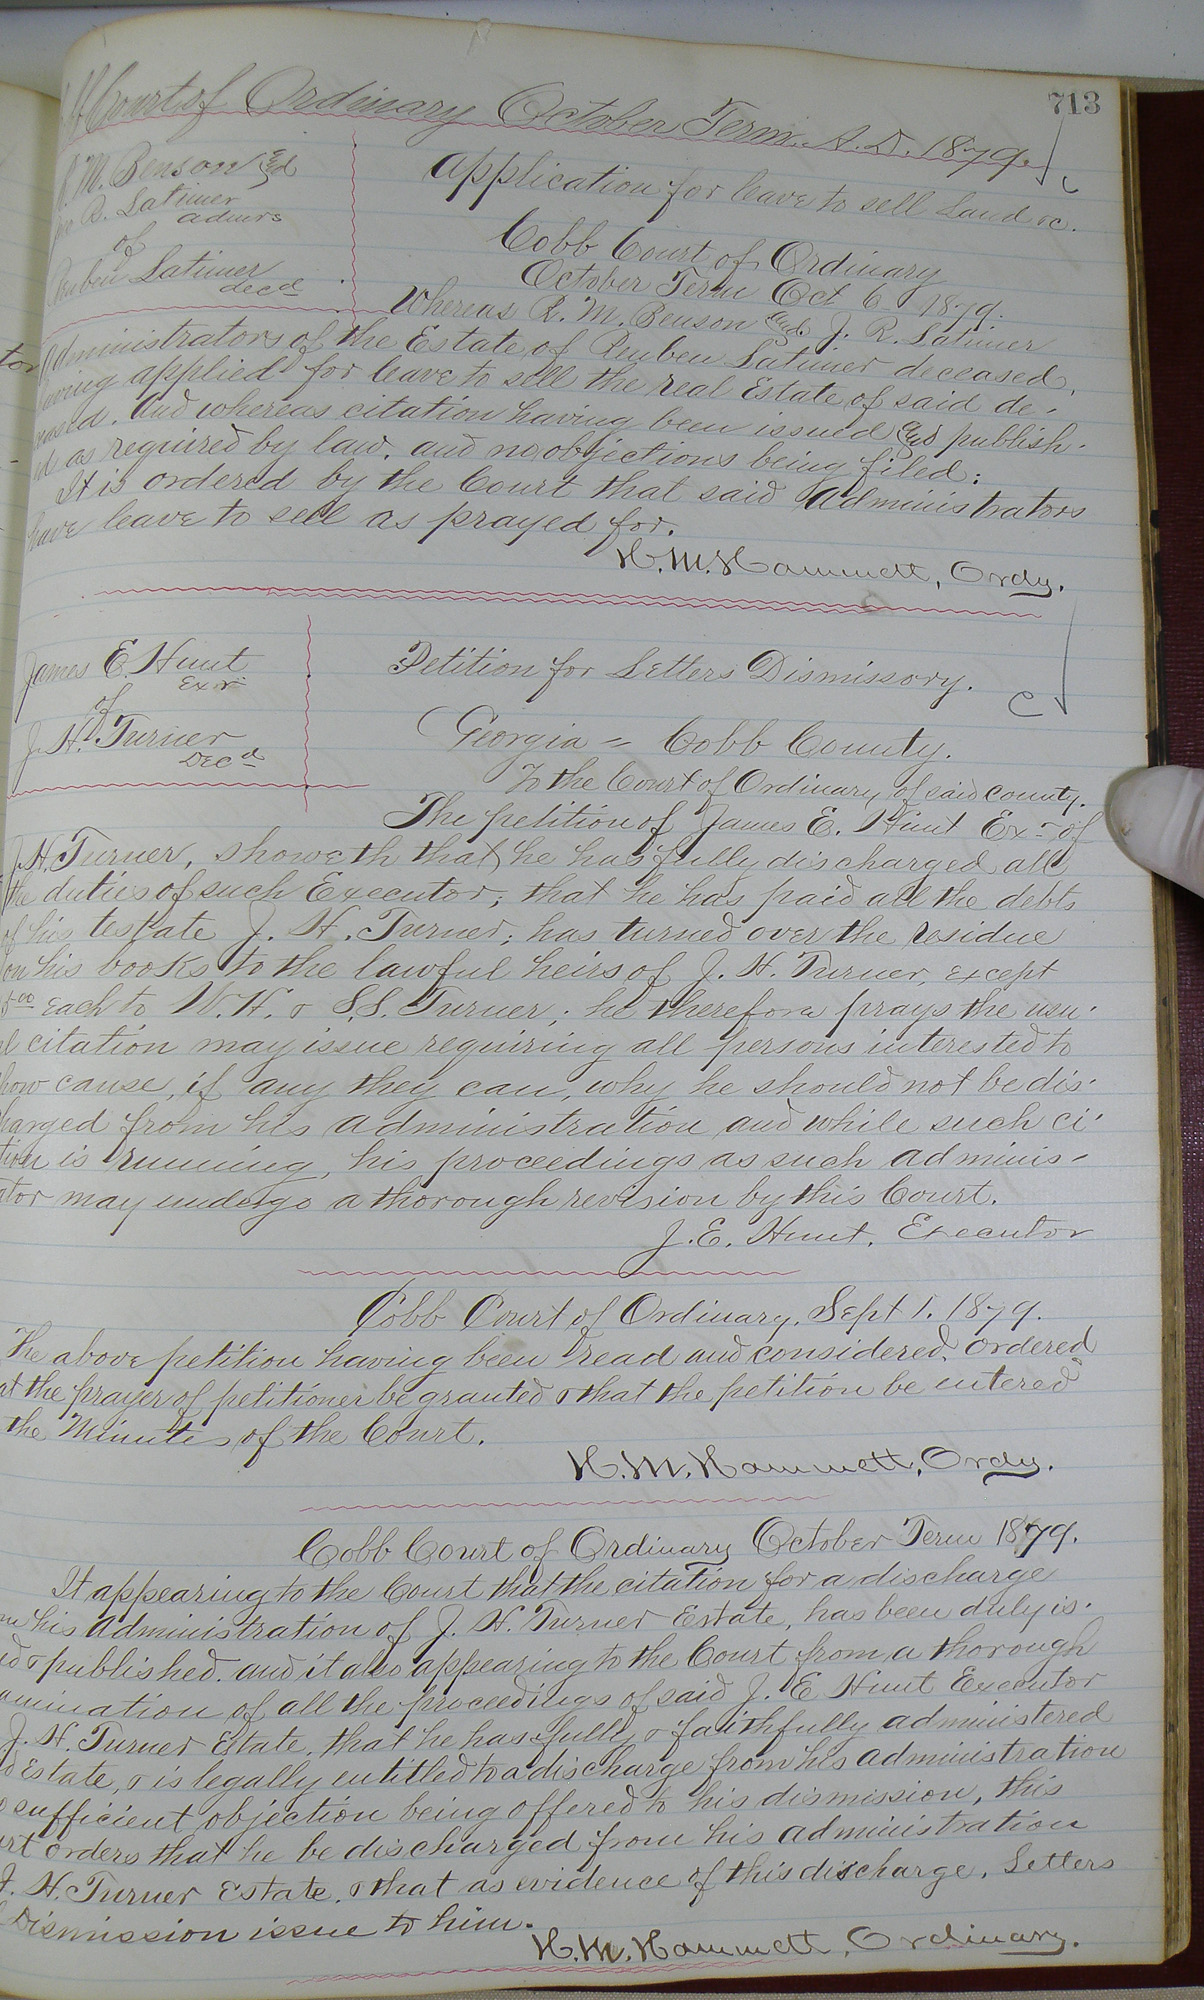 713
Court of Ordinary October Term. A. D. 1879.
R. M. Benson and
B. Latimer
admrs
of
Reuben Latimer
decd
Application for leave to sell Land &c.
Cobb Court of Ordinary
October Term Oct 6 1879.
Whereas R. M. Benson and J. R. Latimer
Administrators of the Estate of Reuben Latimer deceased,
having applied for leave to sell the real Estate of said de-
ceased. And whereas citation having been issued and publish-
ed as required by law, and no objections being filed;
It is ordered by the Court that said Administrators
have leave to sell as prayed for.
H. M. Hammett, Ordy.
James E. Hunt
Exr
of
J. H. Turner
Decd
Petition for Letters Dismissory.
C
Georgia = Cobb County.
To the Court of Ordinary of said county.
The petition of James E. Hunt Exr of
J. H. Turner, showeth that he has fully discharged all
the duties of such Executor; that he has paid all the debts
of his testate J. H. Turner; has turned over the residue
on his books to the lawful heirs of J. H. Turner, except
5 00 each to W. H. & S. S. Turner; he therefore prays the usu-
al citation may issue requiring all persons interested to
how cause, if any they can, why he should not be dis-
harged from his administration and while such ci-
tion is running, his proceedings as such adminis-
ator may undergo a thorough revision by this Court.
J. E. Hunt, Executor
Cobb Court of Ordinary, Sept 1. 1879.
The above petition having been read and considered, ordered
at the prayer of petitioner be granted & that the petition be entered
the Minutes of the Court.
H. M. Hammett, Ordy.
Cobb Court of Ordinary October Term 1879.
It appearing to the Court that the citation for a discharge
m his administration of J. H. Turner Estate, has been duly is-
ed & published. and it also appearing to the Court from a thorough
amination of all the proceedings of said J. E Hunt Executor
J. H. Turner Estate, that he has fully & faithfully administered
d Estate, & is legally entitled to a discharge from his administration
o sufficient objection being offered to his dismission, this
urt orders that he be discharged from his administration
J. H. Turner Estate, & that as evidence of this discharge, Letters
Dismission issue to him.
H. M. Hammett, Ordinary.